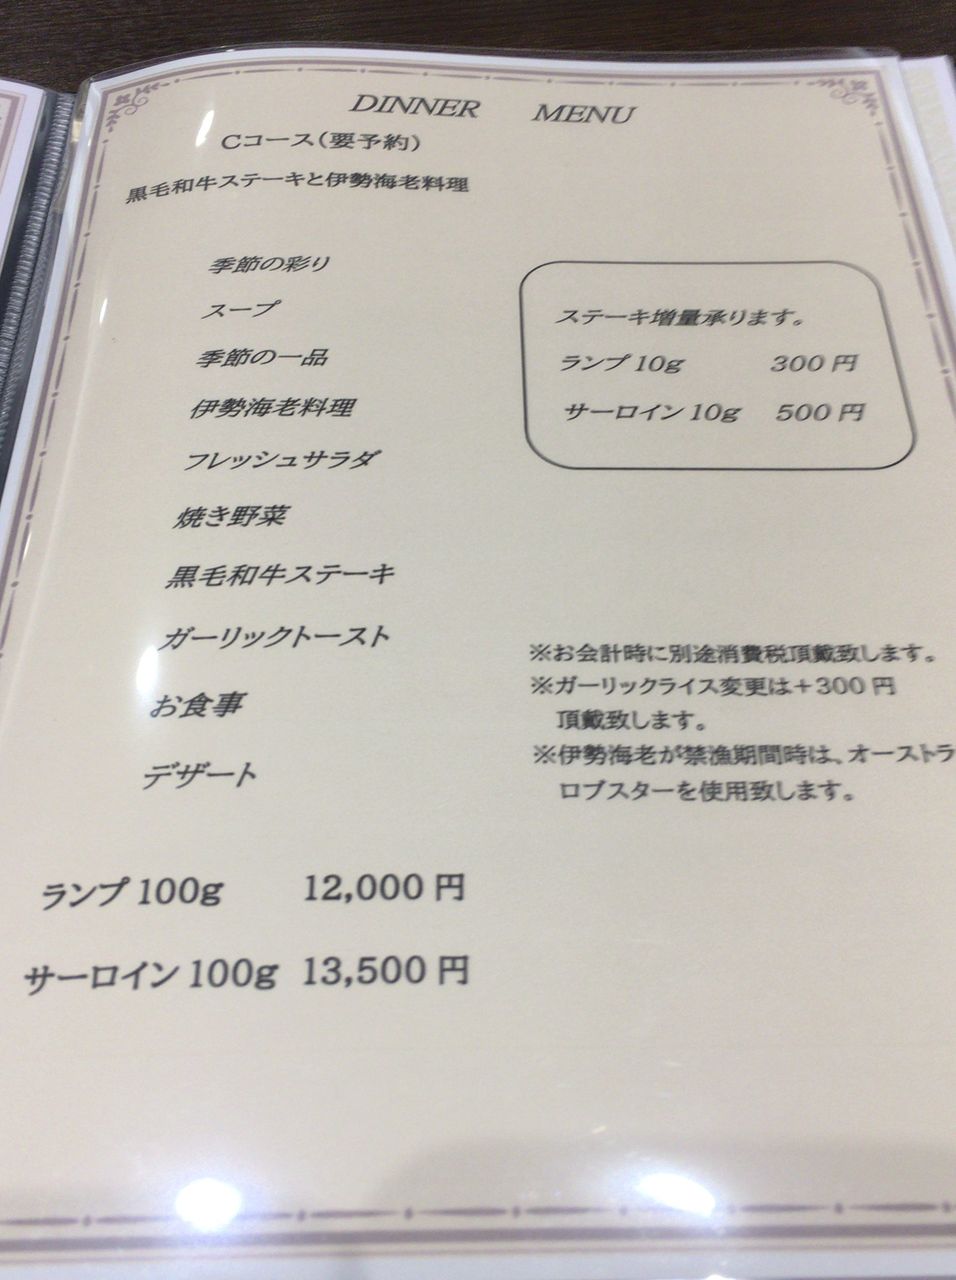 DINNER MENU
Cコース(要予約)
黒毛和牛ステーキと伊勢海老料理
季節の彩り
スープ
季節の一品
伊勢海老料理
フレッシュサラダ
焼き野菜
黒毛和牛ステーキ
ガーリックトースト
お食事
デザート
ランプ 100g 12,000 円
サーロイン 100g 13,500 円
ステーキ増量承ります。
ランプ 10g 300 円
サーロイン 10g 500 円
※お会計時に別途消費税頂戴致します。
※ガーリックライス変更は＋300 円
頂戴致します。
※伊勢海老が禁漁期間時は、オーストラ
ロブスターを使用致します。